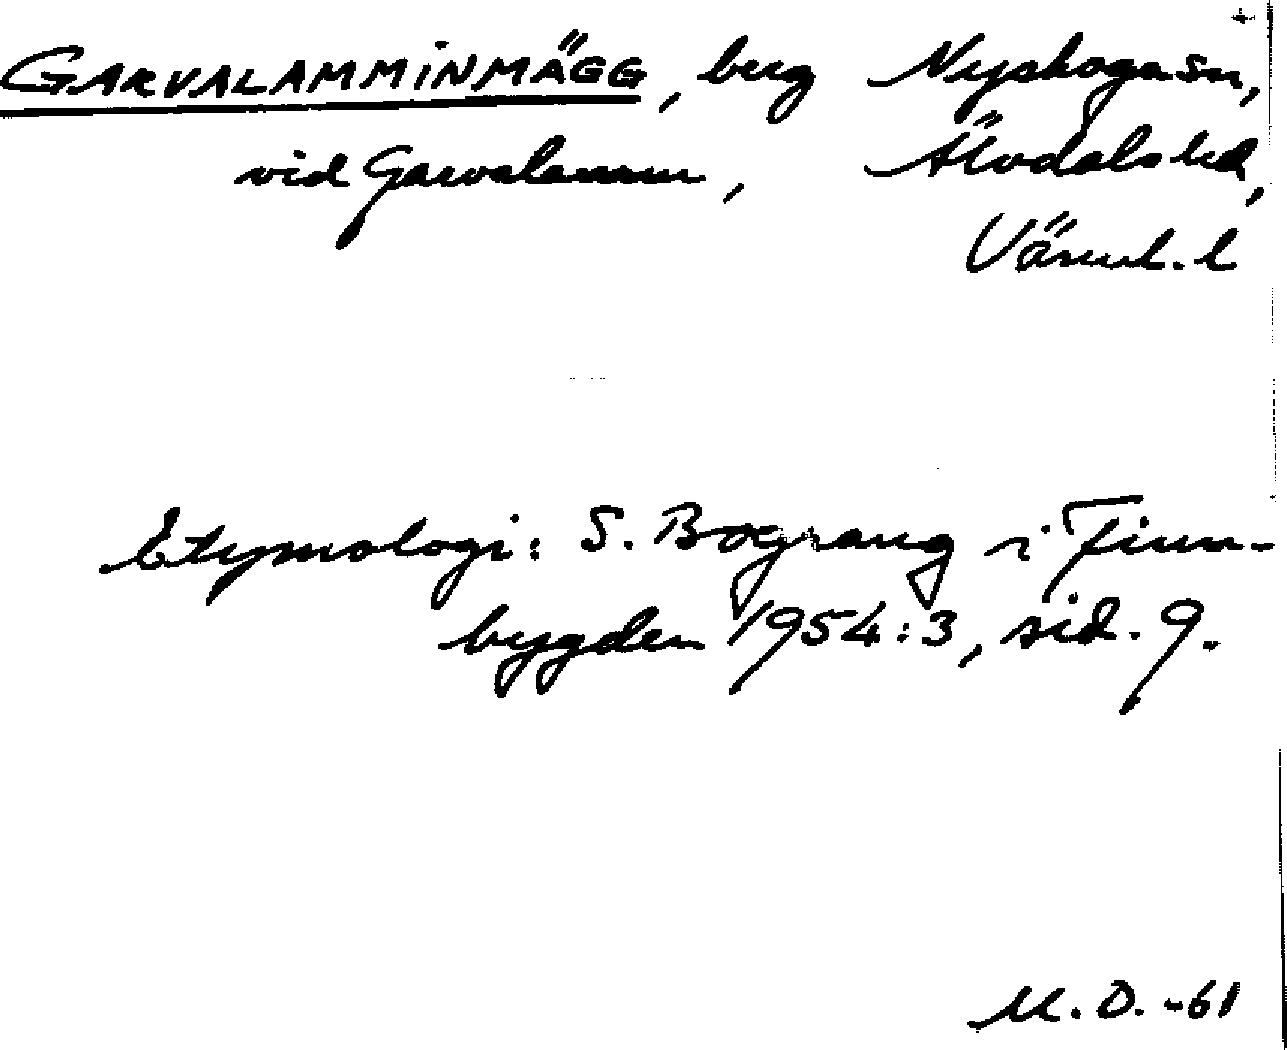 GARVALAMMINMÄGG, berg Nyskoga sn,
vid Garvalamm, Älvdals hd,
Värml. l
Etymologi: S. Bograng i Finn-
bygden 1954:3, sid. 9.
M.O. -61